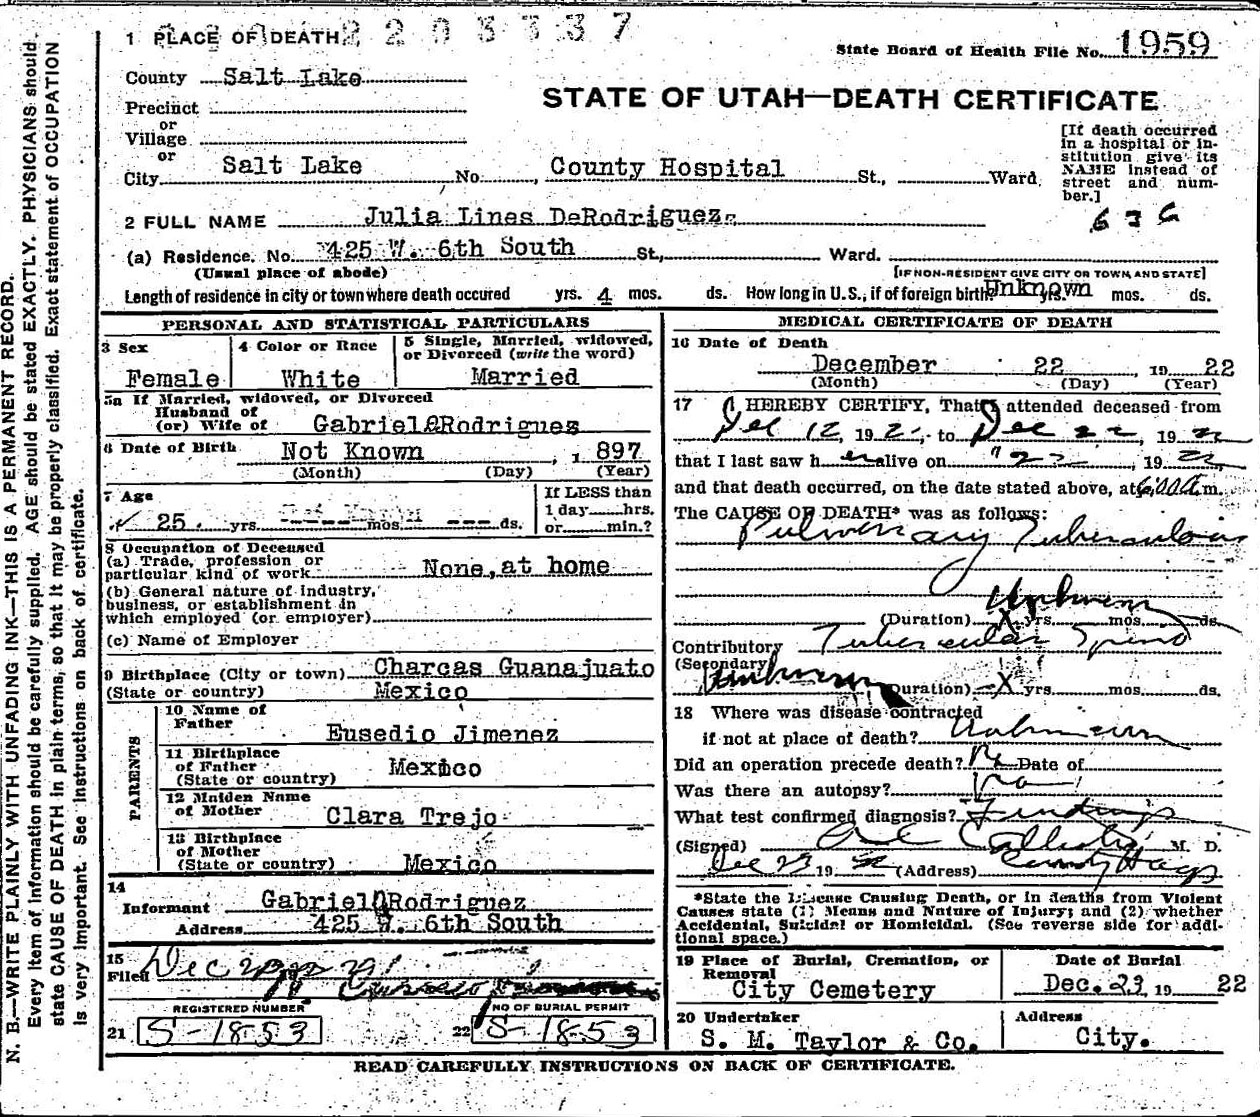 2203337
1 PLACE OF DEATH
State Board of Health File No. 1959
County Salt Lake
STATE OF UTAH—DEATH CERTIFICATE
Precinct
or
Village
or
City Salt Lake No. County Hospital St., Ward
[If death occurred in a hospital or institution give its NAME instead of street and number.]
636
2 FULL NAME Julia Lines DeRodriguez
(a) Residence. No. 425 W. 6th South St., Ward.
(Usual place of abode) [IF NON-RESIDENT GIVE CITY OR TOWN, AND STATE]
Length of residence in city or town where death occured yrs. 4 mos. ds. How long in U.S., if of foreign birth? Unknown yrs. mos. ds.
PERSONAL AND STATISTICAL PARTICULARS
3 Sex
Female
4 Color or Race
White
5 Single, Married, widowed, or Divorced (write the word)
Married
5a If Married, widowed, or Divorced
Husband of
(or) Wife of Gabriel Rodriguez
6 Date of Birth Not Known , 1 897
(Month) (Day) (Year)
7 Age
25 yrs. mos. ds.
If LESS than
1 day hrs.
or min.?
8 Occupation of Deceased
(a) Trade, profession or
particular kind of work None, at home
(b) General nature of Industry,
business, or establishment in
which employed (or employer)
(c) Name of Employer
9 Birthplace (City or town) Charcas Guanajuato
(State or country) Mexico
PARENTS
10 Name of
Father Eusedio Jimenez
11 Birthplace
of Father Mexico
(State or country)
12 Maiden Name
of Mother Clara Trejo
13 Birthplace
of Mother
(State or country) Mexico
14
Informant Gabriel Rodriguez
Address 425 W. 6th South
15
Filed Dec
REGISTERED NUMBER
21 S-1853
NO OF BURIAL PERMIT
22 S-1853
MEDICAL CERTIFICATE OF DEATH
16 Date of Death
December 22 , 19 22
(Month) (Day) (Year)
17 I HEREBY CERTIFY, That I attended deceased from
Dec 12, 192 , to Dec 22, 19 22
that I last saw her alive on " 22 , 19 22,
and that death occurred, on the date stated above, at 6:00 A m.
The CAUSE OF DEATH* was as follows:
Pulmonary Tuberculosis
Unknown
(Duration) X yrs. mos. ds.
Contributory Tubercular Spine
(Secondary)
Unknown (Duration) X yrs. mos. ds.
18 Where was disease contracted
if not at place of death? Unknown
Did an operation precede death? No Date of
Was there an autopsy? no
What test confirmed diagnosis? Findings
(Signed) M. D.
Dec 23 19 22 (Address) County Hosp
*State the Disease Causing Death, or in deaths from Violent
Causes state (1) Means and Nature of Injury; and (2) whether
Accidental, Suicidal or Homicidal. (See reverse side for addi-
tional space.)
19 Place of Burial, Cremation, or
Removal
City Cemetery
Date of Burial
Dec. 23, 19 22
20 Undertaker
S. M. Taylor & Co.
Address
City.
READ CAREFULLY INSTRUCTIONS ON BACK OF CERTIFICATE.
N. B.—WRITE PLAINLY WITH UNFADING INK—THIS IS A PERMANENT RECORD.
Every item of information should be carefully supplied. AGE should be stated EXACTLY. PHYSICIANS should
state CAUSE OF DEATH in plain terms, so that it may be properly classified. Exact statement of OCCUPATION
is very important. See instructions on back of certificate.